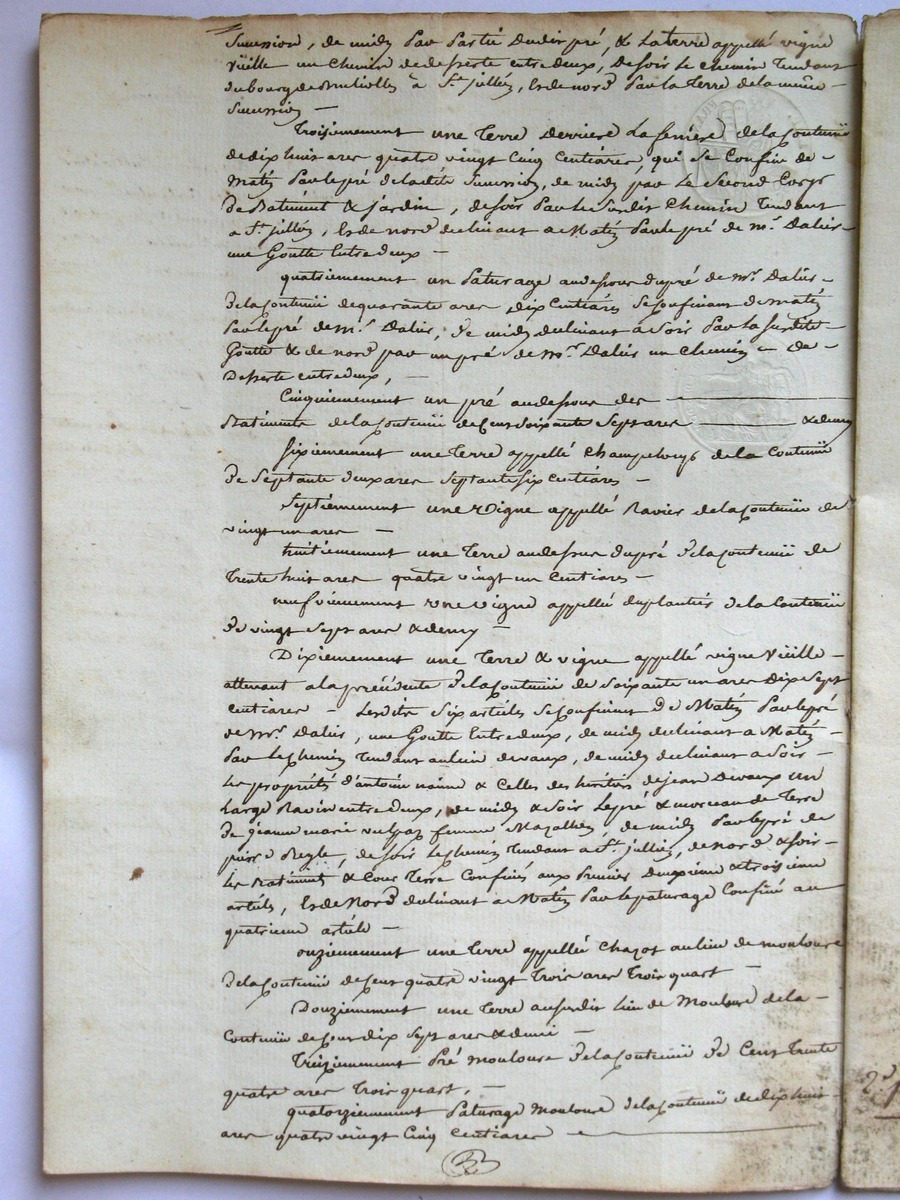 Succession, de midy par partie dudit pré, & la terre appellé vigne
Vieille un chemin de desserte entredeux, de soir le chemin tendant
du bourg de à St. jullien, & de nord par la Terre de la même
Succession —
Troisiemement une Terre derriere la de la Contenue
de dix huit ares quatre vingt cinq centiares, qui se Confine de —
Matin par le pré de ladite Succession, de midy par le Second Corps
de Batiment & jardin, de soir par le susdit chemin tendant
a St. jullien, & de nord declinant a Matin par le pré de mr. Daliés —
une Goutte Entredeux —
quatriemement un Paturage audessous du pré de Mr. Daliés —
de la Contenue de quarante ares dix Centiares se Confinant de matin
par le pré de Mr. Daliés, de midy declinant a soir par la susdite —
Goutte & de nord par un pré de Mr. Daliés un chemin — de —
desserte entredeux, —
Cinquiemement un pré audessous des —
Batiments de la Contenue de Cent soixante Sept ares — & demy
Sixiemement une Terre appellé de la Contenue
de Septante deux ares Septante six centiares —
Septiemement une Vigne appellé Ravier de la Contenue de
vingt un ares —
huitiemement une Terre audessus du pré de la Contenue de
Trente huit ares quatre vingt un Centiares —
neufviemement une vigne appellée duplantier de la Contenue
de vingt Sept ares & demy —
Dixiemement une Terre & vigne appellé vigne Vieille —
attenant a la précédente de la Contenue de soixante un ares dix Sept
centiares — Lesdits six articles se Confinent de Matin par le pré
de Mr. Daliés, une Goutte Entredeux, de midy declinant a Matin —
par le Chemin Tendant au lieu devaux, de midy declinant a Soir —
les propriétés d'antoine & Celles des heritiers de jean Devaux un
large Ravin entredeux, de midy & Soir le pré & morceau de Terre
de jeanne marie femme, de midy par le pré de
pierre, de soir le chemin tendant a St. jullien, de Nord & Soir —
les Batiments & Cour Terre Confinés aux Premier deuxieme & troisieme
articles, & de Nord declinant a Matin par le paturage Confiné au
quatrieme article —
onziemement une Terre appellée Chazot au lieu de moulouse
de la Contenue de Cent quatre vingt Trois ares Trois quart —
Douziemement une Terre au susdit lieu de Moulouse de la —
Contenue de Cent dix Sept ares & demie —
Treiziemement Pré Moulouse de la Contenue de Cent Trente
quatre ares Trois quart, —
quatorziemement Paturage Moulouse de la Contenue de dix huit
ares quatre vingt Cinq centiares —